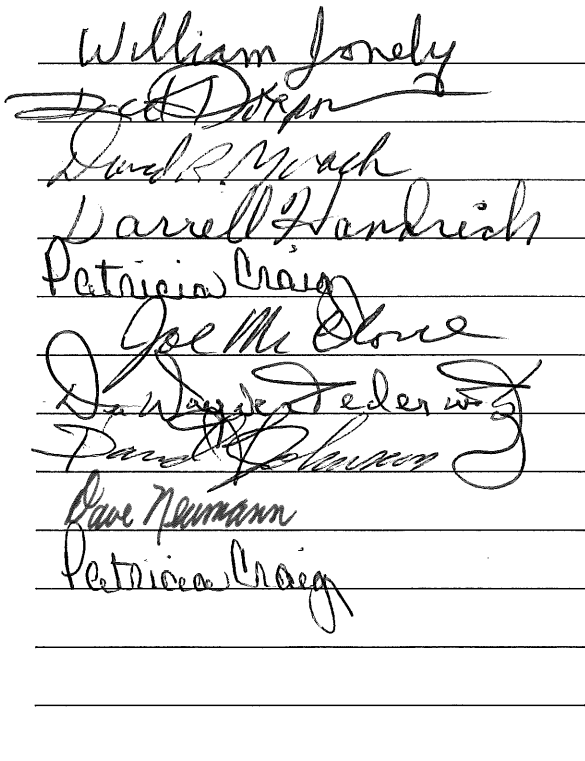 William Jonely
David R.
Darrell Handrich
Patricia Craig
Joe Mc Glone
DeWayne Federwitz
David Johnson
Dave Neumann
Patricia Craig